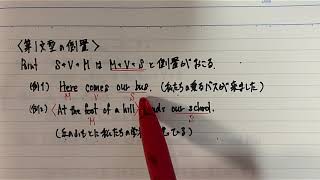 〈第1文型の倒置〉
Point S+V+M は M+V+S と倒置がおこる
(例1) Here comes our bus. (私たちの乗るバスが来ました)
M V S
(例2) 〈At the foot of a hill〉 our school.
M S
(丘のふもとに私たちの ている)